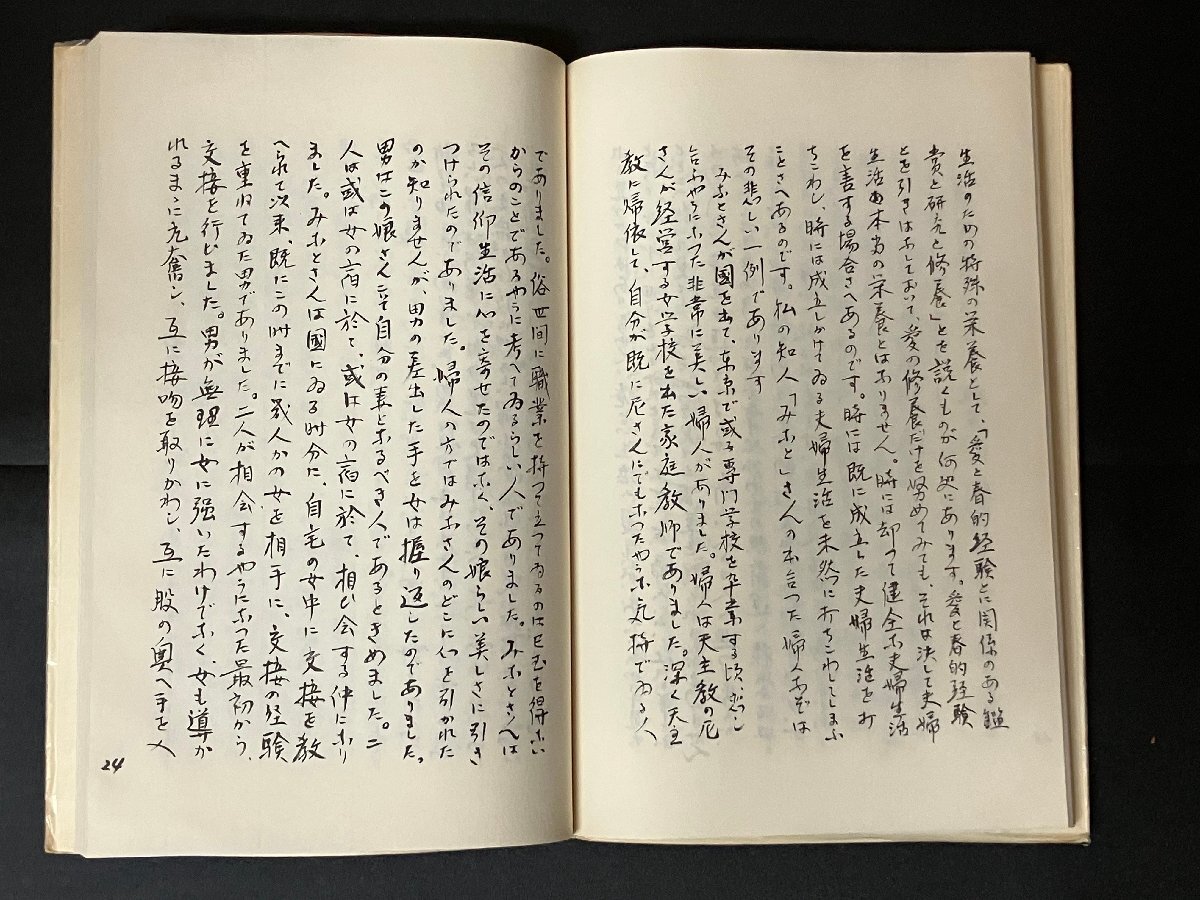 生活のための特殊の栄養として、「愛と春的経験とに関係のある鑑
賞と研究と修養」とを説くものが何処にあります。愛と春的経験
とを引きはなしておいて、愛の修養だけを努めてみても、それは決して夫婦
生活の本当の栄養とはなりません。時には却つて健全な夫婦生活
を害する場合さへあるのです。時には既に成立した夫婦生活を打
ちこわし、時には成立しかけてゐる夫婦生活を未然に打ちこわしてしまふ
ことさへあるのです。私の知人「みさと」さんの出合つた婦人などは
その悲しい一例であります
みさとさんが國を出て、東京で或る専門学校を卒業する頃、恋し
合ふやうになつた非常に美しい婦人がありました。婦人は天主教の尼
さんが経営する女学校を出た家庭教師でありました。深く天主
教に帰依して、自分が既に尼さんにでもなつたやうな気持でゐる人
でありました。俗世間に職業を持つて立つてゐるのは已むを得ない
からのことであるやうに考へてゐるらしい人でありました。みさとさんは
その信仰生活に心を寄せたのではなく、その娘らしい美しさに引き
つけられたのでありました。婦人の方ではみさとさんのどこに心を引かれた
のか知りませんが、男の差出した手を女は握り返したのでありました。
男はこの娘さんこそ自分の妻となるべき人であるときめました。二
人は或は女の宿に於て、或は女の宿に於て、相ひ会する仲になり
ました。みさとさんは國にゐる時分に、自宅の女中に交接を教
へられて以来、既にこの時までに幾人かの女を相手に、交接の経験
を重ねてゐた男でありました。二人が相会するやうになつた最初から、
交接を行じました。男が無理に女に強いたわけでなく、女も導か
れるまゝに亢奮し、互に接吻を取りかわし、互に股の奥へ手を入
24